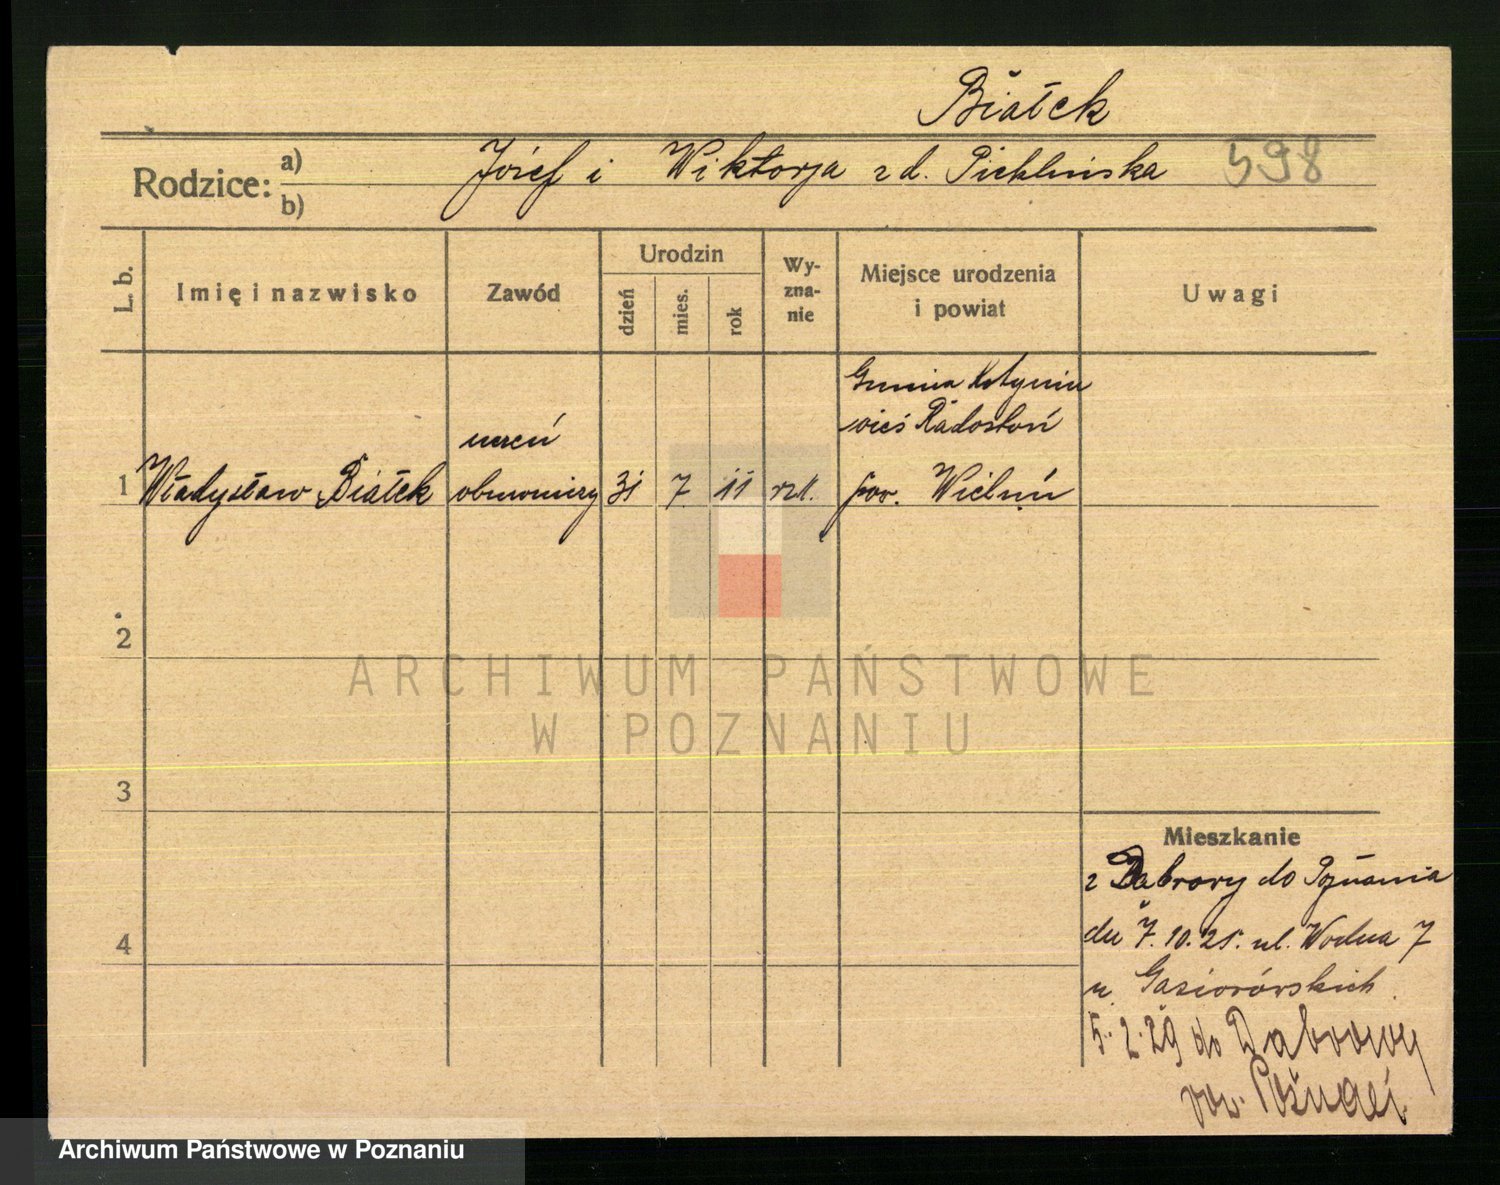 Białek
Rodzice: a) b) Józef i Wiktorja z d. Pichlińska 598
L. b.
Imię i nazwisko
Zawód
Urodzin
dzień
mies.
rok
Wy-
zna-
nie
Miejsce urodzenia
i powiat
Uwagi
Gmina
wieś Radostoń
uczeń
1 Władysław Białek 31 7 11 rz.k. pow. Wieluń
2
ARCHIWUM PAŃSTWOWE
W POZNANIU
3
Mieszkanie
z Dąbrowy do Poznania
4
dn 7.10.25. ul. Wodna 7
u Gąsiorowskich
5.2.29 do Dąbrowy
pow. Poznań
Archiwum Państwowe w Poznaniu